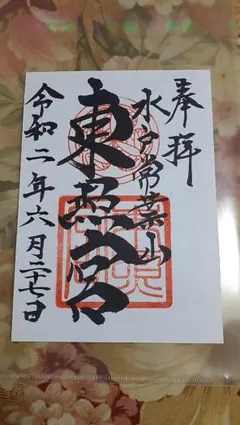 奉拝
水戸常葉山
東照宮
令和二年六月二十七日